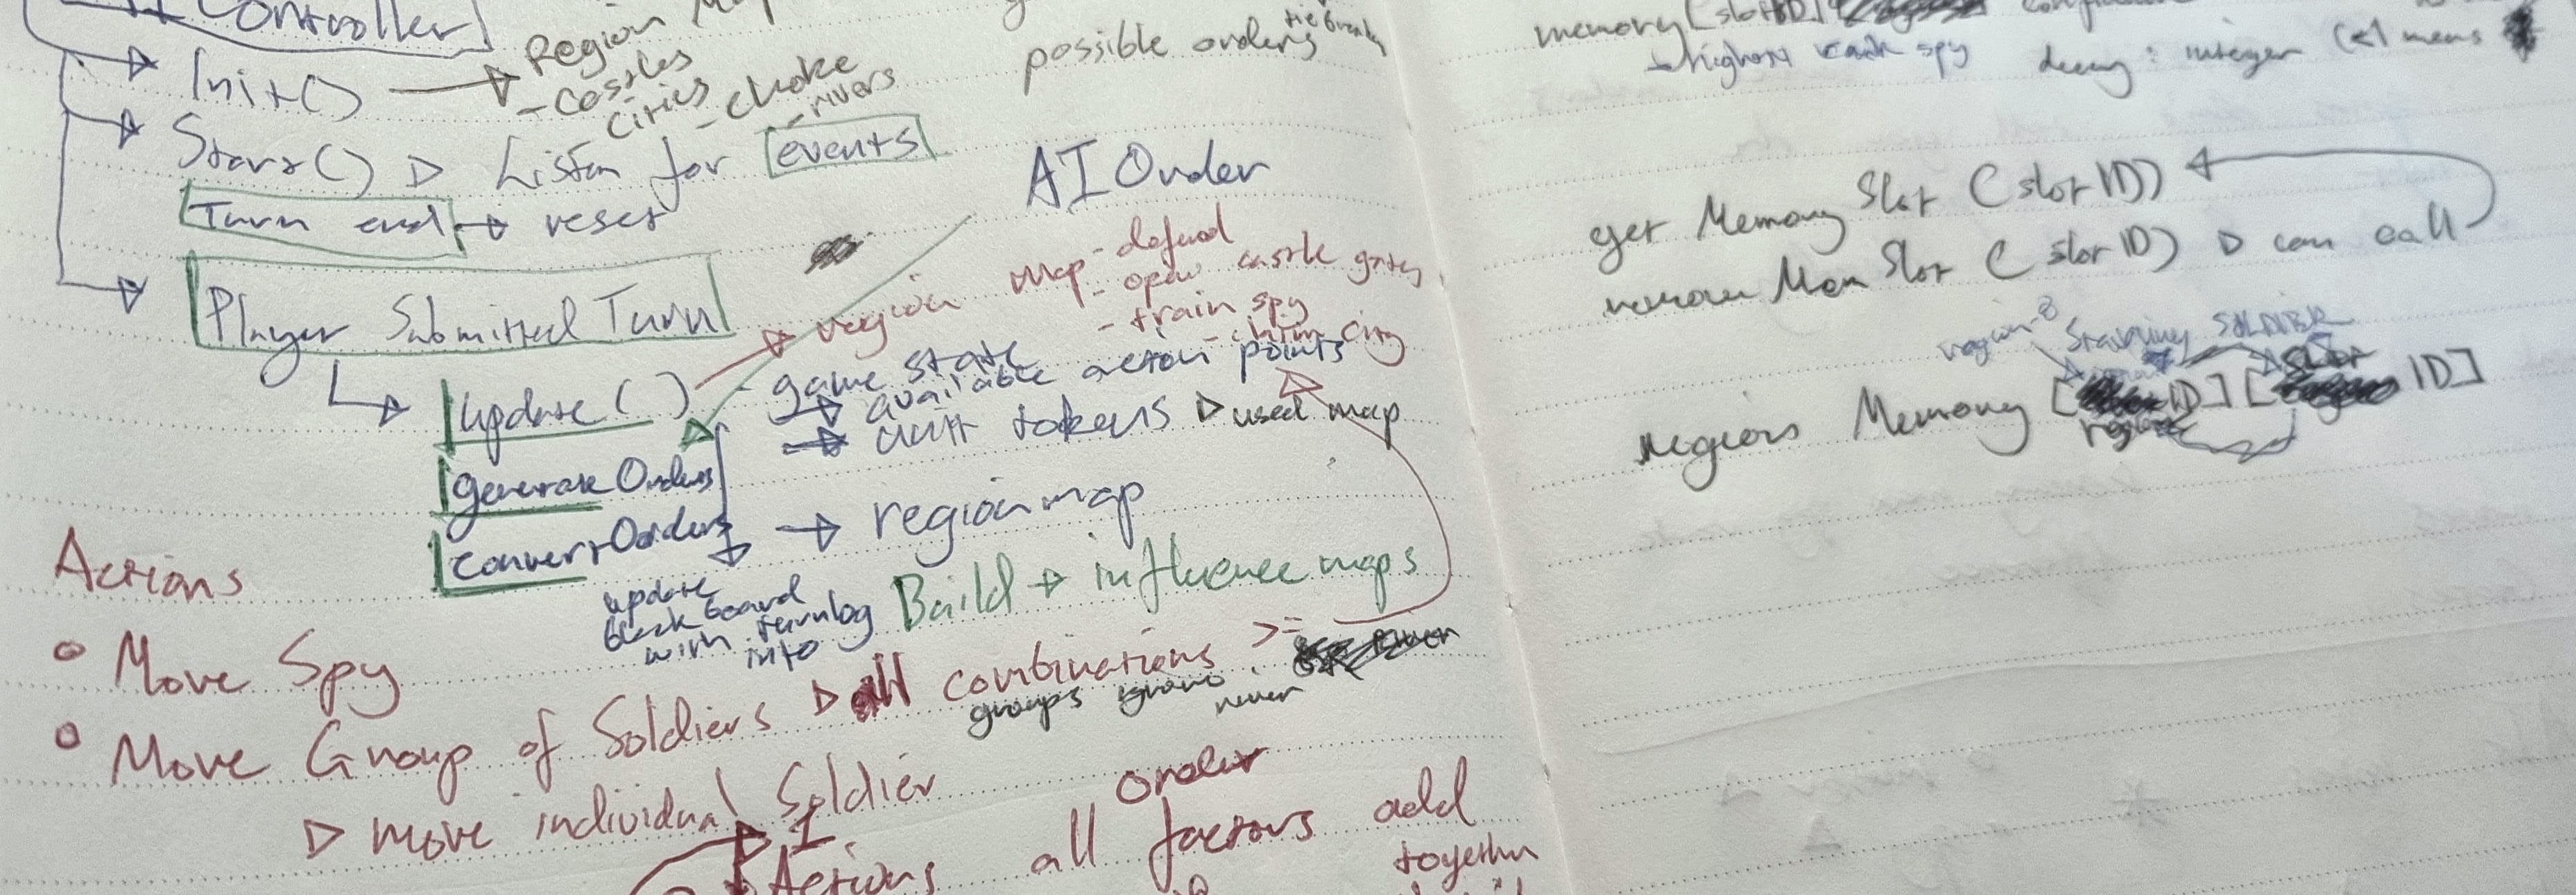 Controller
Init()
Region Map
- castles
cities
- choke
- rivers
Start() ▷ Listen for events
Turn end → reset
Player Submitted Turn
update()
generateOrders
convertOrders
possible orders
AI Order
region map
- defend
- open castle gates
- train spy
city
- game state
→ available action points
→ unit tokens ▷ used map
→ region map
update
blackboard
with turnlog
info
Build → influence maps
Actions
Move Spy
Move Group of Soldiers ▷ all combinations >=
groups
never
▷ move individual Soldier
order
Actions
all factors add
together
memory[slotID]
→ highest rank spy
decay: integer (<1 means
get Memory Slot (slotID)
Mem Slot (slotID) ▷ can call
Starting SOLDIER
regions Memory [ ID][ ID]